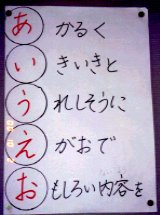 あ かるく
い きいきと
う れしそうに
え がおで
お もしろい内容を